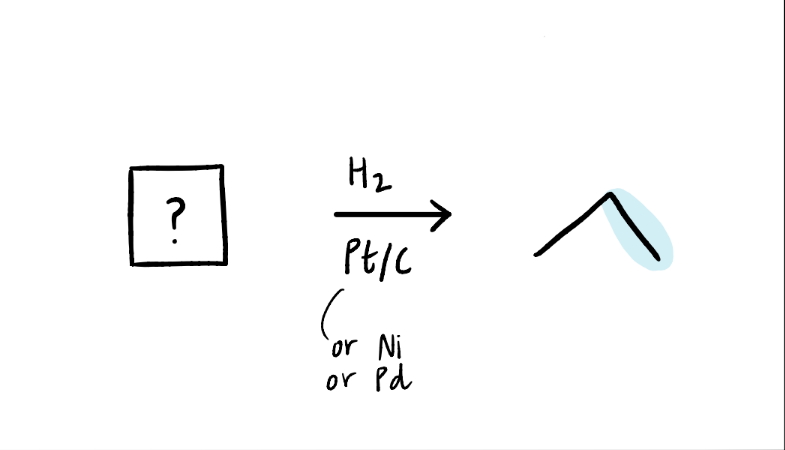 ?
H₂
Pt/C
or Ni
or Pd